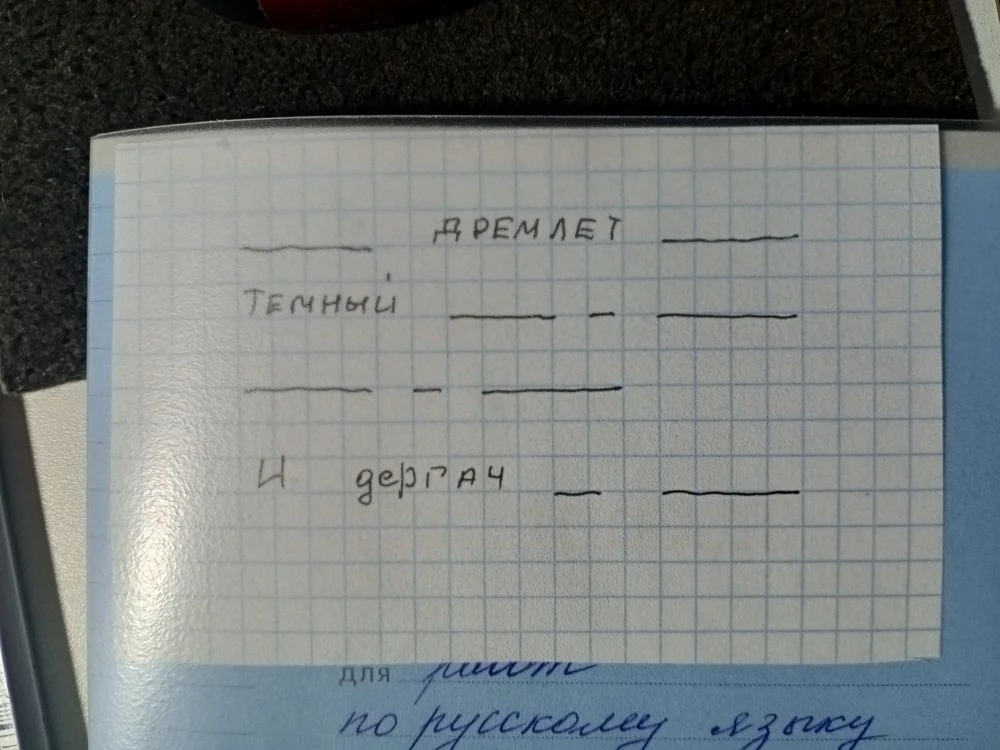 ____ ДРЕМЛЕТ ____
ТЕМНЫЙ ____ _ ____
____ _ ____
И дергач __ ____
для работ
по русскому языку